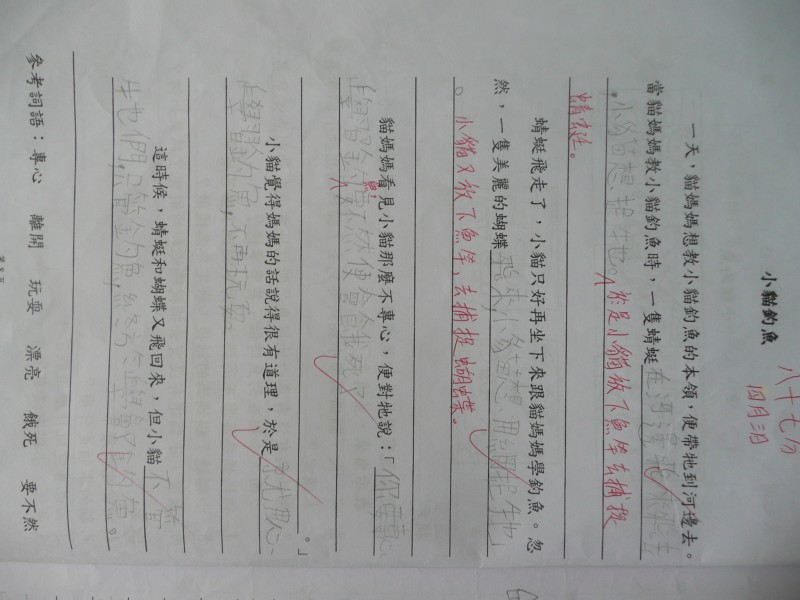 八十七分
四月三日
小貓釣魚
一天，貓媽媽想教小貓釣魚的本領，便帶牠到河邊去。
當貓媽媽教小貓釣魚時，一隻蜻蜓在河邊飛來飛去
，小貓想捉牠。於是小貓放下魚竿去捕捉
蜻蜓。
蜻蜓飛走了，小貓只好再坐下來跟貓媽媽學釣魚。忽
然，一隻美麗的蝴蝶飛來,小貓想用網捉牠
。小貓又放下魚竿，去捕捉蝴蝶。
貓媽媽看見小貓那麼不專心，便對牠說：「你要專心
學習釣魚,要不然便會餓死了
。」
小貓覺得媽媽的話說得很有道理，於是就用心
學習釣魚,不再玩耍。
這時候，蜻蜓和蝴蝶又飛回來，但小貓不管
牠們,只管釣魚,終於學會了釣魚。
參考詞語：專心 離開 玩耍 漂亮 餓死 要不然